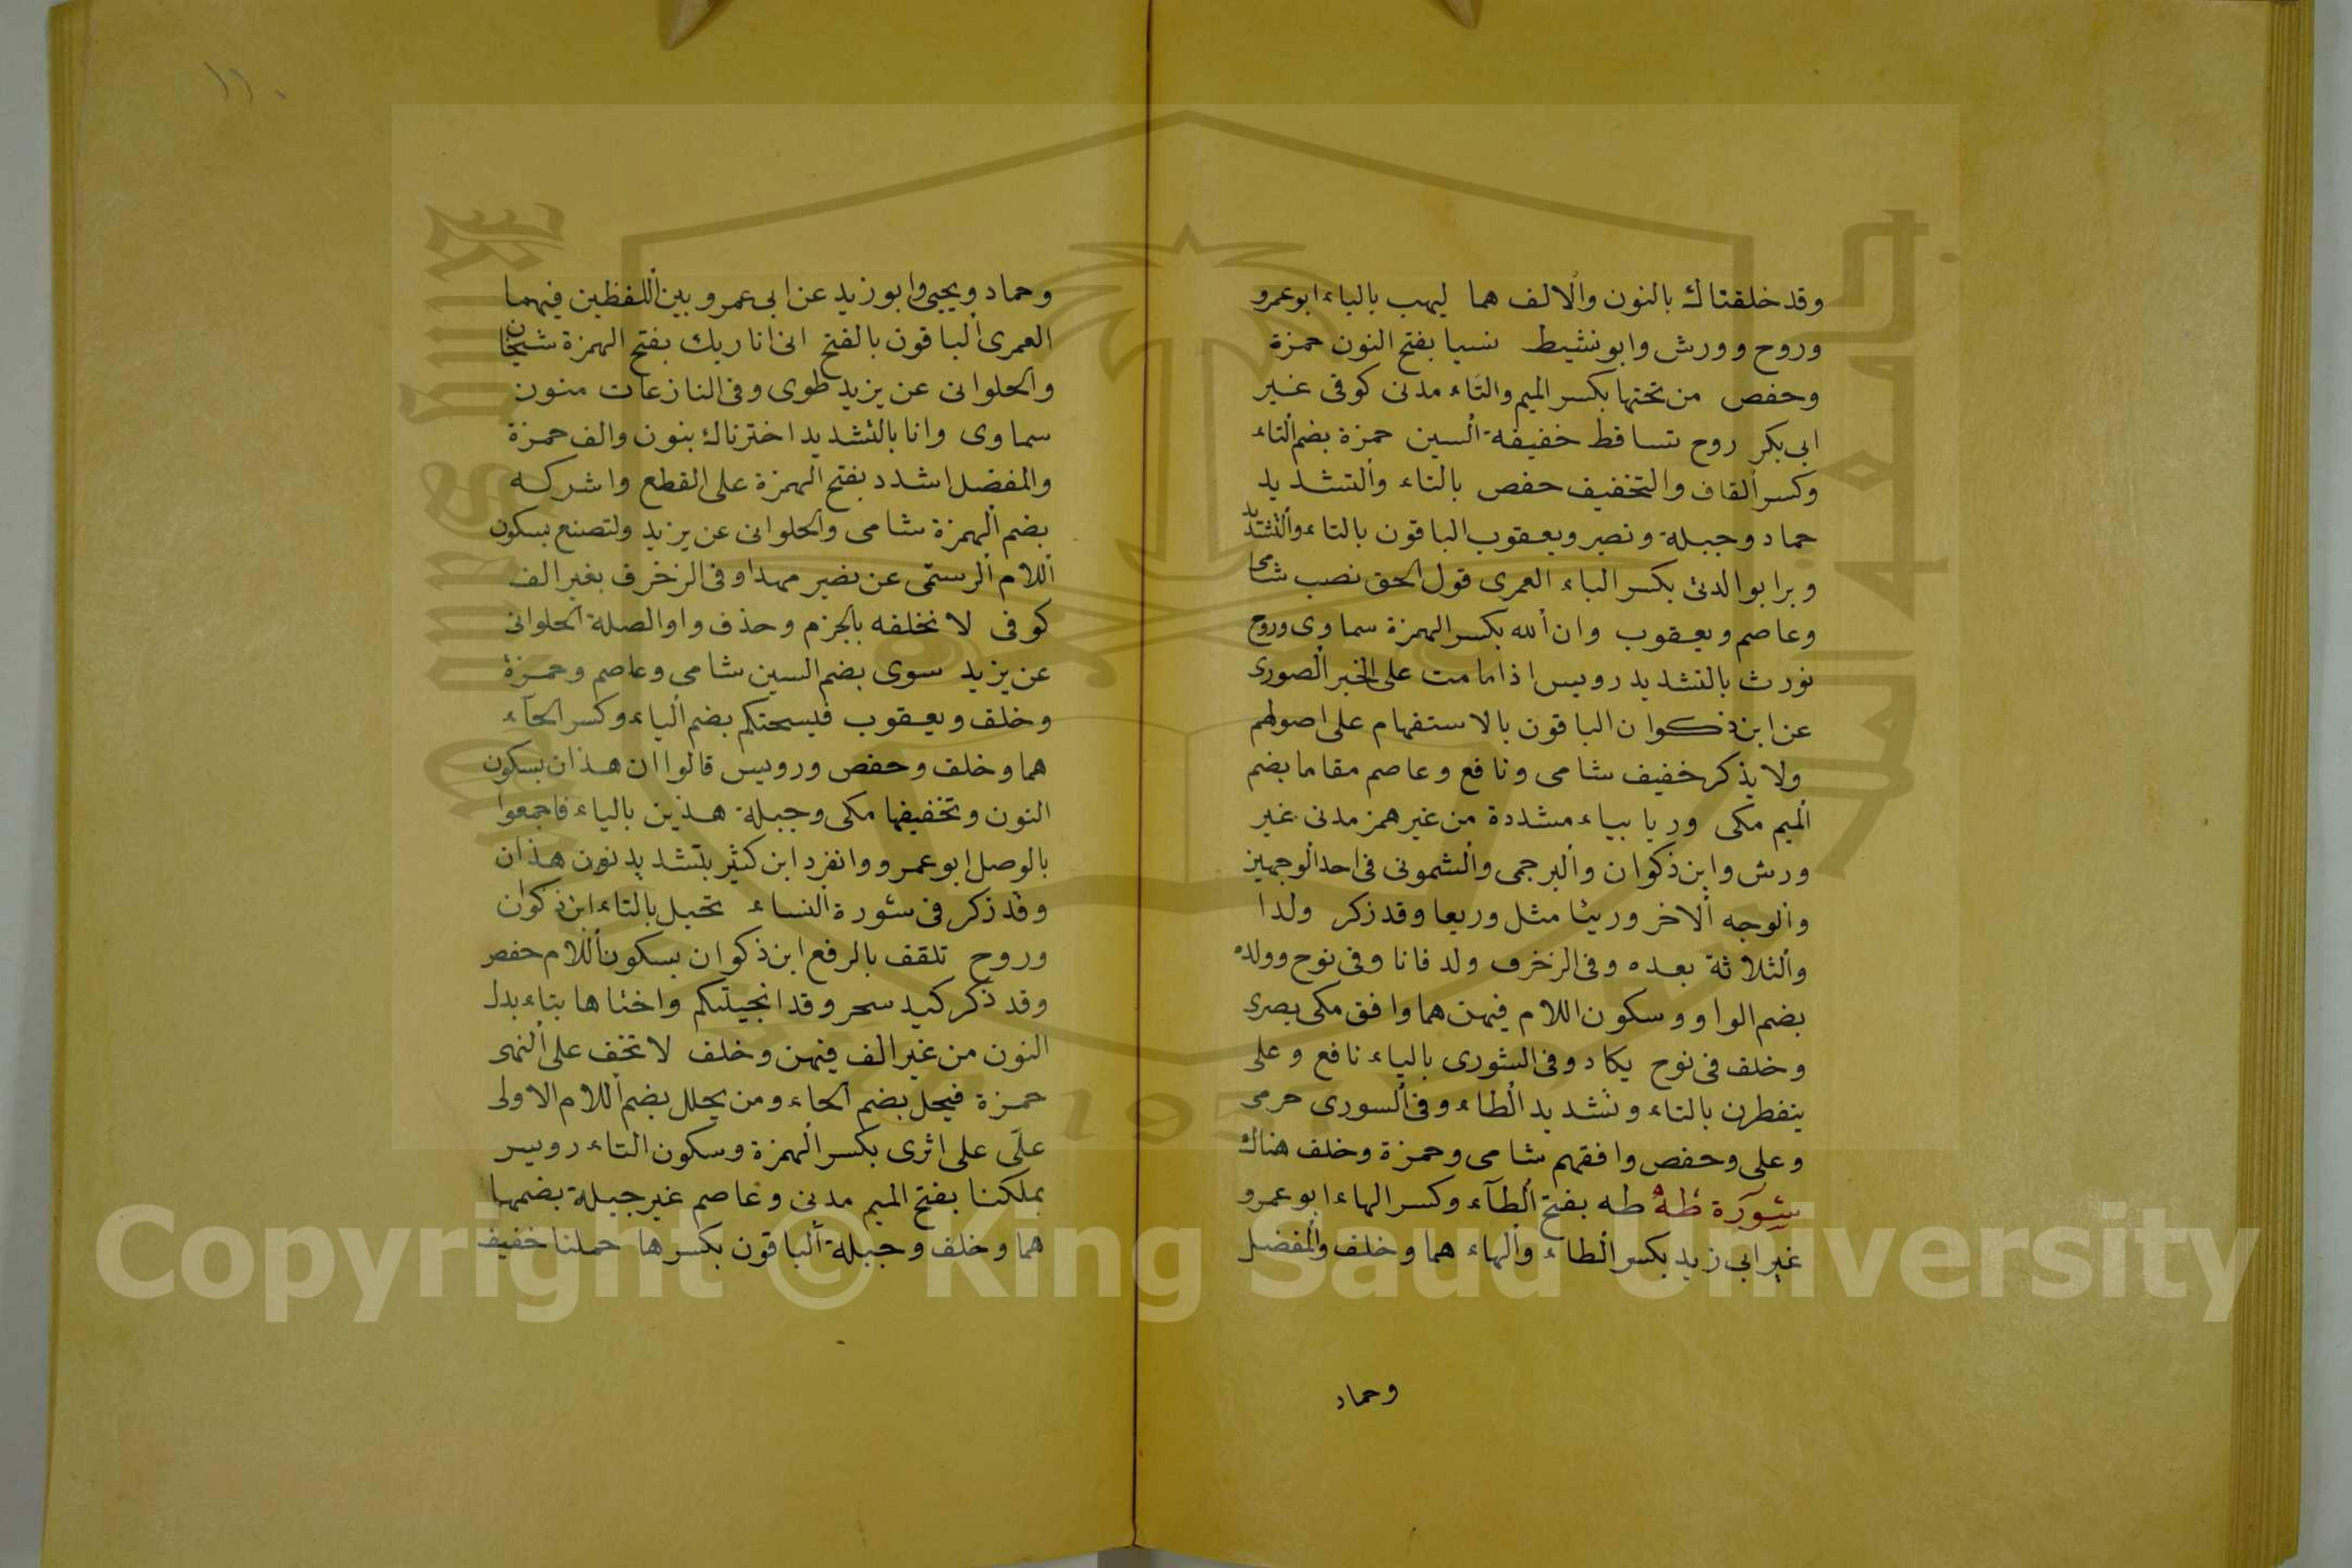 وقد خلقناك بالنون والالف هما ليهب بالياء ابو عمرو
وروح وورش وابو نشيط نسيا بفتح النون حمزة
وحفص من تحتها بكسر الميم والتاء مدنى كوفى غير
ابى بكر روح تساقط خفيفة السين حمزة بضم التاء
وكسر القاف والتخفيف حفص بالتاء والتشديد
حماد وجبلة ونصير ويعقوب الباقون بالتاء والتشديد
وبرا بوالدتى بكسر الباء العمرى قول الحق نصب شامى
وعاصم ويعقوب وان الله بكسر الهمزة سماوى وروح
نورث بالتشديد رويس اذا مامت على الخبر الصورى
عن ابن ذكوان الباقون بالاستفهام على اصولهم
ولا يذكر خفيف شامى ونافع وعاصم مقاما بضم
الميم مكى وريا بياء مشددة من غير همز مدنى غير
ورش وابن ذكوان والبرجمى والشمونى فى احد الوجهين
والوجه الاخر ورئيا مثل وريعا وقد ذكر ولدا
والثلاثة بعده وفى الزخرف ولد فانا وفى نوح وولده
بضم الواو وسكون اللام فيهن هما وافق مكى بصرى
وخلف فى نوح يكاد وفى الشورى بالياء نافع وعلى
يتفطرن بالتاء وتشديد الطاء وفى السورى حرمى
وعلى وحفص وافقهم شامى وحمزة وخلف هناك
سورة طه طه بفتح الطآء وكسر الهاء ابو عمرو
غير ابى زيد بكسر الطاء والهاء هما وخلف والمفضل
وحماد
١١٠
وحماد ويحيى وابو زيد عن ابى عمرو بين اللفظين فيهما
العمرى الباقون بالفتح انى انا ربك بفتح الهمزة شيخان
والحلوانى عن يزيد طوى وفى النازعات منون
سماوى وانا بالتشديد اخترناك بنون والف حمزة
والمفضل اشدد بفتح الهمزة على القطع واشركه
بضم الهمزة شامى والحلوانى عن يزيد ولتصنع بسكون
اللام الرستمى عن نصير مهدا وفى الزخرف بغير الف
كوفى لا نخلفه بالجزم وحذف واو الصلة الحلوانى
عن يزيد سوى بضم السين شامى وعاصم وحمزة
وخلف ويعقوب فيسحتكم بضم الياء وكسر الحآء
هما وخلف وحفص ورويس قالوا ان هذان بسكون
النون وتخفيفها مكى وجبلة هذين بالياء فاجمعوا
بالوصل ابو عمرو وانفرد ابن كثير بتشديد نون هذان
وقد ذكر فى سورة النساء تخيل بالتاء ابن ذكوان
وروح تلقف بالرفع ابن ذكوان بسكون اللام حفص
وقد ذكر كيد سحر وقد انجيتكم واختاها بتاء بدل
النون من غير الف فيهن وخلف لا تخف على النهى
حمزة فيحل بضم الحاء ومن يحلل بضم اللام الاولى
علّى على اثرى بكسر الهمزة وسكون التاء رويس
بملكنا بفتح الميم مدنى وعاصم غير جبلة بضمها
هما وخلف وجبلة الباقون بكسرها حملنا خفيف
Copyright © King Saud University